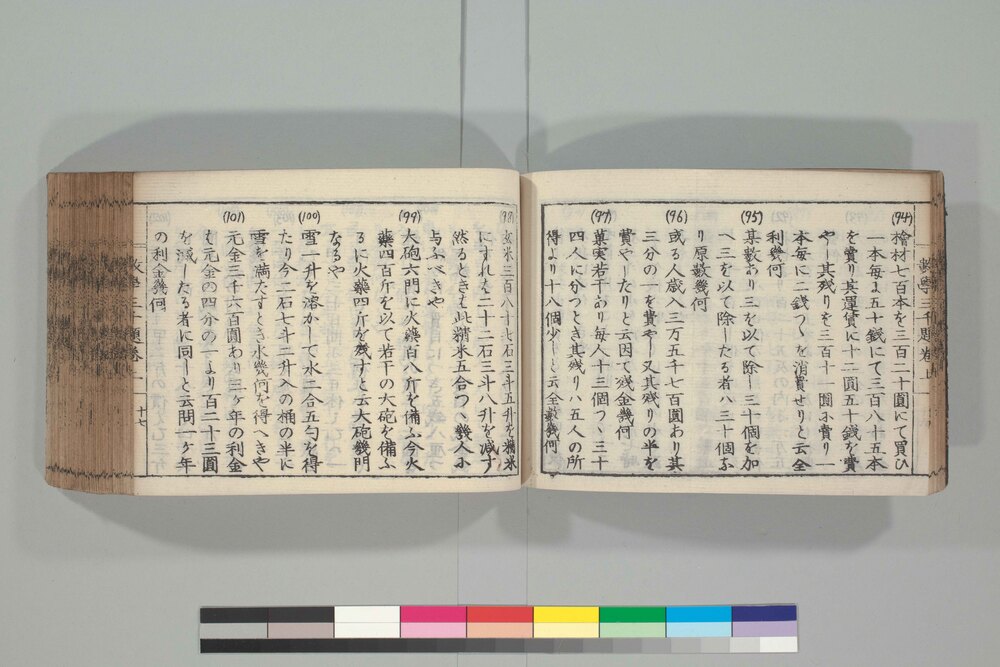 (94)
檜材七百本を三百二十圓にて買ひ
一本毎よ五十錢にて三百八十五本
を賣り其運賃に十二圓五十錢を費
やし其殘りを三百十一圓に賣り一
本毎に二錢つゝを消費せりと云全
利幾何
(95)
某數あり三を以て除し三十個を加
へ三を以て除したる者ハ三十個ふ
り原數幾何
(96)
或る人歳入三万五千七百圓あり其
三分の一を費やし又其殘りの半を
費やしたりと云因て殘金幾何
(97)
菓実若干あり毎人十三個つゝ三十
四人に分つとき其殘りハ五人の所
得より十八個少しと云全數幾何
(98)
玄米三百八十七石三斗五升を精米
にすれも二十二石三斗八升を減す
然るときも此精米五合つゝ幾人に
与ふべきや
(99)
大砲六門に火藥百八斤を備ふ今火
藥四百斤を以て若干の大砲を備ふ
るに火藥四斤を殘すと云大砲幾門
なるや
(100)
雪一升を溶かして水二合五勺を得
たり今二石七斗二升入の桶の半に
雪を滿たすとき水幾何を得へきや
(101)
元金三千六百圓あり三ヶ年の利金
も元金の四分の一より百二十三圓
を減したる者に同しと云問一ヶ年
の利金幾何
數學三千題卷上
十七